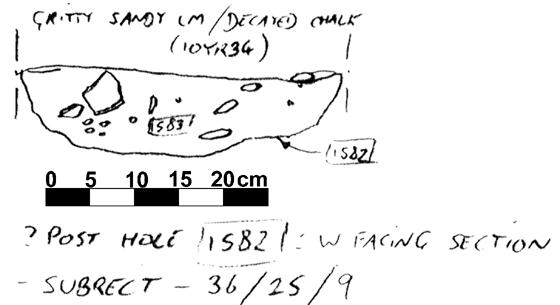 GRITTY SANDY LM / DECAYED CHALK
(10YR34)
1583
1582
0 5 10 15 20cm
? POST HOLE 1582 : W FACING SECTION
- SUBRECT - 36/25/9